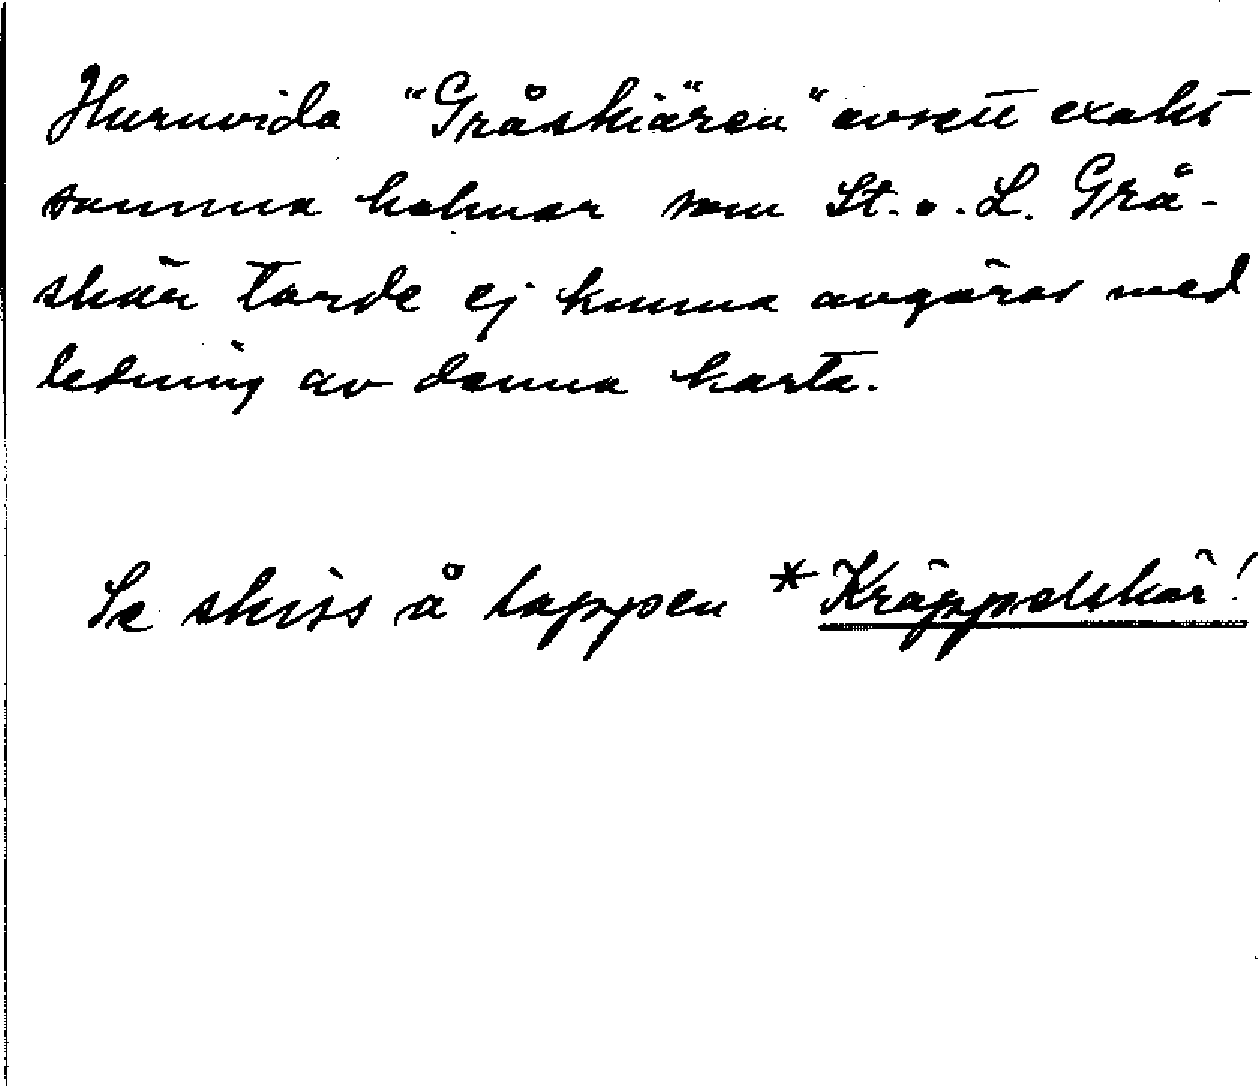 Huruvida "Gråskiären" avsett exakt
samma holmar som St. o. L. Grå-
skär torde ej kunna avgöras med
ledning av denna karta.
Se skiss å lappen *Kräppelskär!